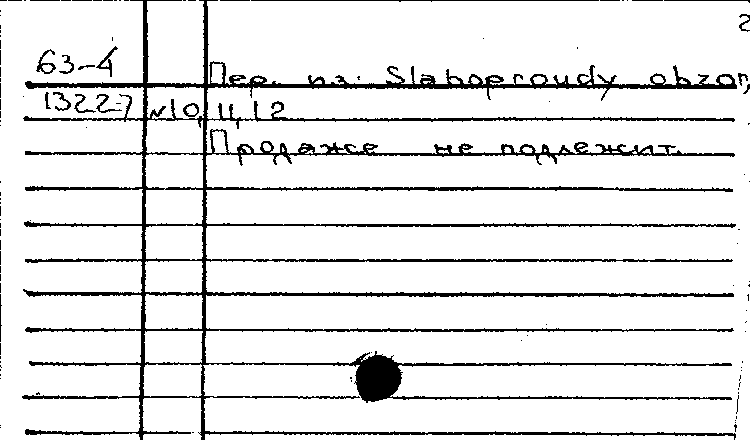 2
63-4
Пер. из: Slaboproudy obzor,
13227 №10, 11, 12
Продаже не подлежит.